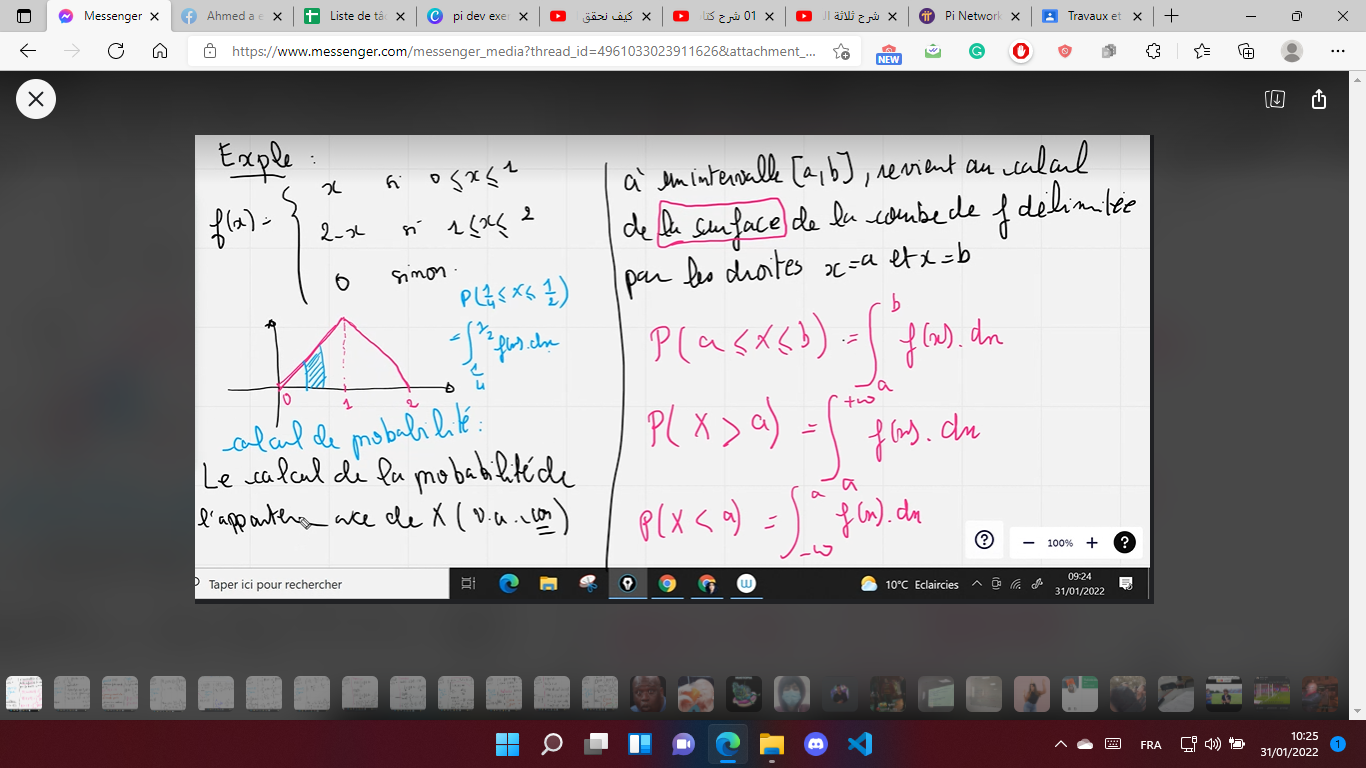 Messenger
Ahmed a e
Liste de tâc
pi dev exer
كيف نحقق
01 شرح كتا
شرح ثلاثة ال
Pi Network
Travaux et
https://www.messenger.com/messenger_media?thread_id=4961033023911626&attachment_...
NEW
Exple :
f(x) = { x si 0 ≤ x ≤ 1
2-x si 1 ≤ x ≤ 2
0 sinon.
P(1/4 ≤ X ≤ 1/2)
= ∫_{1/4}^{1/2} f(x).dx
0 1 2
calcul de probabilité :
Le calcul de la probabilité de
l'appartenance de X (v.a.con)
à un intervalle [a,b], revient au calcul
de la surface de la courbe de f délimitée
par les droites x=a et x=b
P(a ≤ X ≤ b) = ∫_a^b f(x).dx
P(X > a) = ∫_a^{+∞} f(x).dx
P(X < a) = ∫_{-∞}^a f(x).dx
100%
Taper ici pour rechercher
10°C Eclaircies
09:24
31/01/2022
FRA
10:25
31/01/2022
1